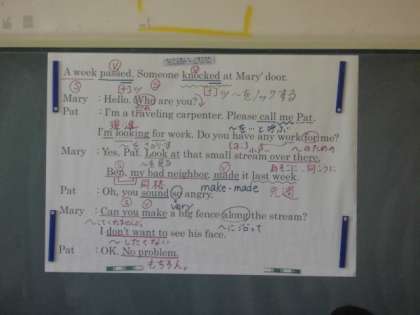 A week passed. Someone knocked at Mary' door.
～をノックする
Mary : Hello. Who are you?
Pat : I'm a traveling carpenter. Please call me Pat.
～を…と呼ぶ
I'm looking for work. Do you have any work for me?
～のための
Mary : Yes, Pat. Look at that small stream over there.
～を見る
Ben, my bad neighbor, made it last week.
同格 make-made 先週
Pat : Oh, you sound so angry.
very
Mary : Can you make a big fence along the stream?
～に沿って
I don't want to see his face.
～したくない
Pat : OK. No problem.
もちろん。